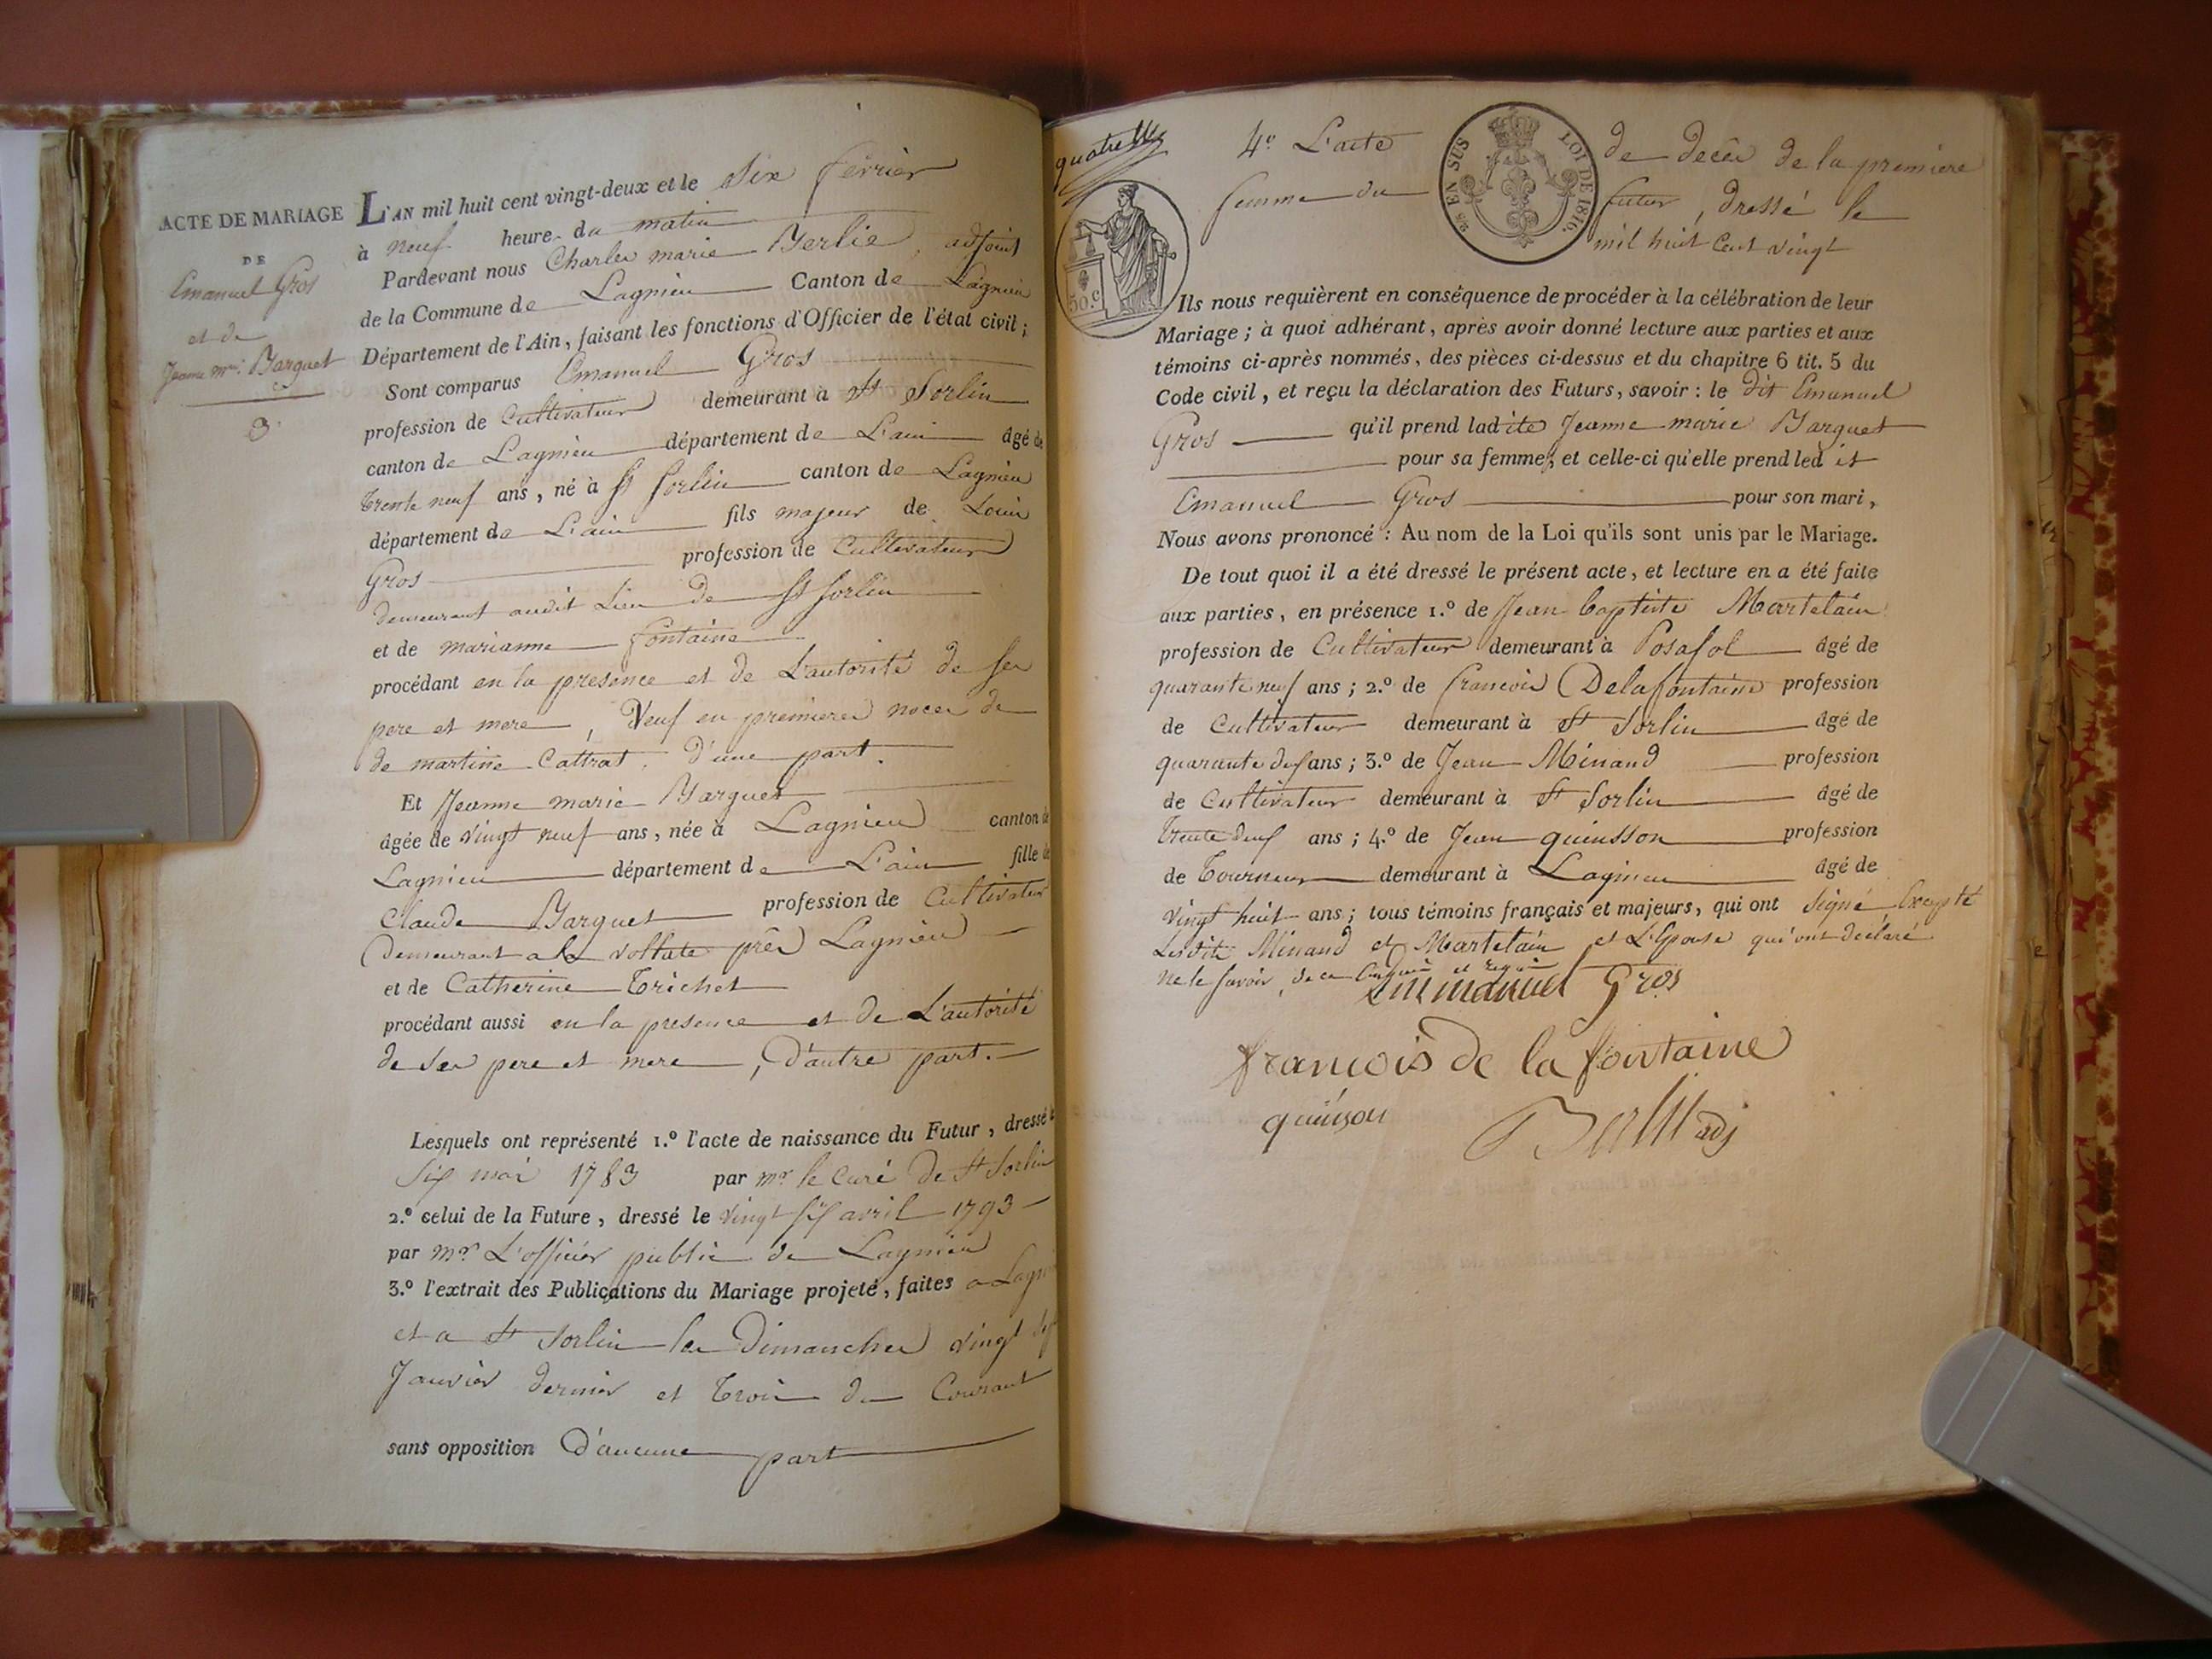 ACTE DE MARIAGE
DE
Emanuel Gros
et de
Jeanne mie Barquet
3
L'AN mil huit cent vingt-deux et le Six fevrier
à neuf heure du matin
Pardevant nous Charles marie Berlie, adjoint
de la Commune de Lagnieu Canton de Lagnieu
Département de l'Ain, faisant les fonctions d'Officier de l'état civil;
Sont comparus Emanuel Gros
profession de Cultivateur demeurant à St Sorlin
canton de Lagnieu département de L'ain âgé de
trente neuf ans, né à St Sorlin canton de Lagnieu
département de L'ain fils majeur de Louis
Gros profession de Cultivateur
demeurant audit Lieu de St Sorlin
et de marianne fontaine
procédant en la presence et de L'autorité de ses
pere et mere, Veuf en premieres noces de
de martine Cattrat. D'une part.
Et Jeanne marie Barquet
âgée de vingt neuf ans, née à Lagnieu canton de
Lagnieu département de L'ain fille de
Claude Barquet profession de Cultivateur
Demeurant a la voltate près Lagnieu
et de Catherine Trichet
procédant aussi en la presence et de L'autorité
de ses pere et mere, D'autre part.
Lesquels ont représenté 1.º l'acte de naissance du Futur, dressé le
Six mai 1783 par mr le Curé de St Sorlin
2.º celui de la Future, dressé le vingt six avril 1793
par mr L'officier public de Lagnieu
3.º l'extrait des Publications du Mariage projeté, faites a Lagn
et a St Sorlin les Dimanches vingt sept
Janvier dernier et trois du Courant
sans opposition D'aucune part
quatre
30.c
4º L'acte de decès de la premiere
EN SUS LOI DE 1816.
femme du futur, dressé le
mil huit Cent vingt
Ils nous requièrent en conséquence de procéder à la célébration de leur
Mariage; à quoi adhérant, après avoir donné lecture aux parties et aux
témoins ci-après nommés, des pièces ci-dessus et du chapitre 6 tit. 5 du
Code civil, et reçu la déclaration des Futurs, savoir: le dit Emanuel
Gros qu'il prend ladite Jeanne marie Barquet
pour sa femme, et celle-ci qu'elle prend led it
Emanuel Gros pour son mari,
Nous avons prononcé: Au nom de la Loi qu'ils sont unis par le Mariage.
De tout quoi il a été dressé le présent acte, et lecture en a été faite
aux parties, en présence 1.º de Jean baptiste Martelain
profession de Cultivateur demeurant à Posafol âgé de
quarante neuf ans; 2.º de francois Delafontaine profession
de Cultivateur demeurant à St Sorlin âgé de
quarante ans; 3.º de Jean Minand profession
de Cultivateur demeurant à St Sorlin âgé de
trente ans; 4.º de Jean quinsson profession
de Tourneur demeurant à Lagnieu âgé de
vingt huit ans; tous témoins français et majeurs, qui ont signé Excepté
Lesdits Minand et Martelain et L'Epouse qui ont declaré
ne le savoir, de ce Enquis et requis
Emmanuel Gros
francois de la fontaine
quinson